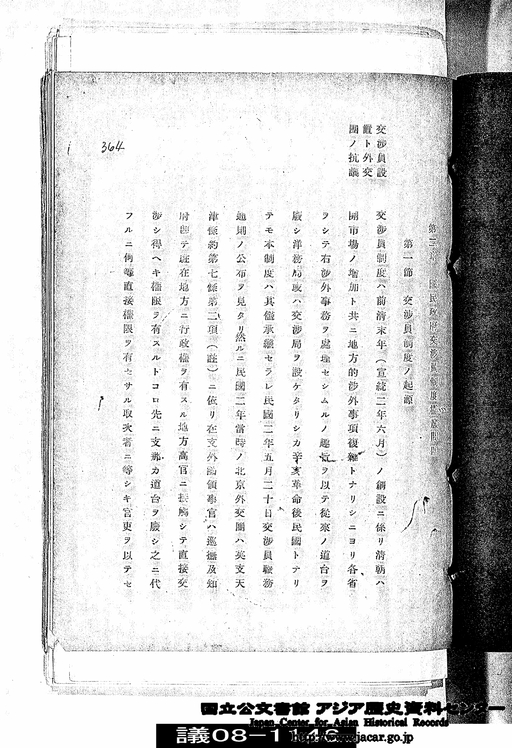 第一節 交渉員制度ノ起源
交渉員設
置ト外交
團ノ抗議
交渉員制度ハ前清末年(宣統二年六月)ノ創設ニ係リ清朝ハ
開市場ノ増加ト共ニ地方的渉外事項複雜トナリシニヨリ各省
ヲシテ右渉外事務ヲ處理セシムルノ趣気ヲ以テ從來ノ道台ヲ
廢シ洋務局又ハ交渉局ヲ設ケタリシカ辛亥革命後民國トナリ
テモ本制度ハ其儘承繼セラレ民國二年五月二十日交渉員職務
通則ノ公布ヲ見タリ然ルニ民國二年當時ノ北京外交團ハ英支天
津條約第七條第二項(註)ニ依リ在支外國領事官ハ巡撫及知
府在地方ニ行政權ヲ有スル地方高官ニ接觸シテ直接交
渉シ得ヘキ權限ヲ有スルトコロ先ニ支那カ道台ヲ廢シ之ニ代
フルニ何等直接權限ヲ有セサル取次者ニ等シキ官吏ヲ以テセ
364
国立公文書館 アジア歴史資料センター
Japan Center for Asian Historical Records
http://www.jacar.go.jp
議08-1